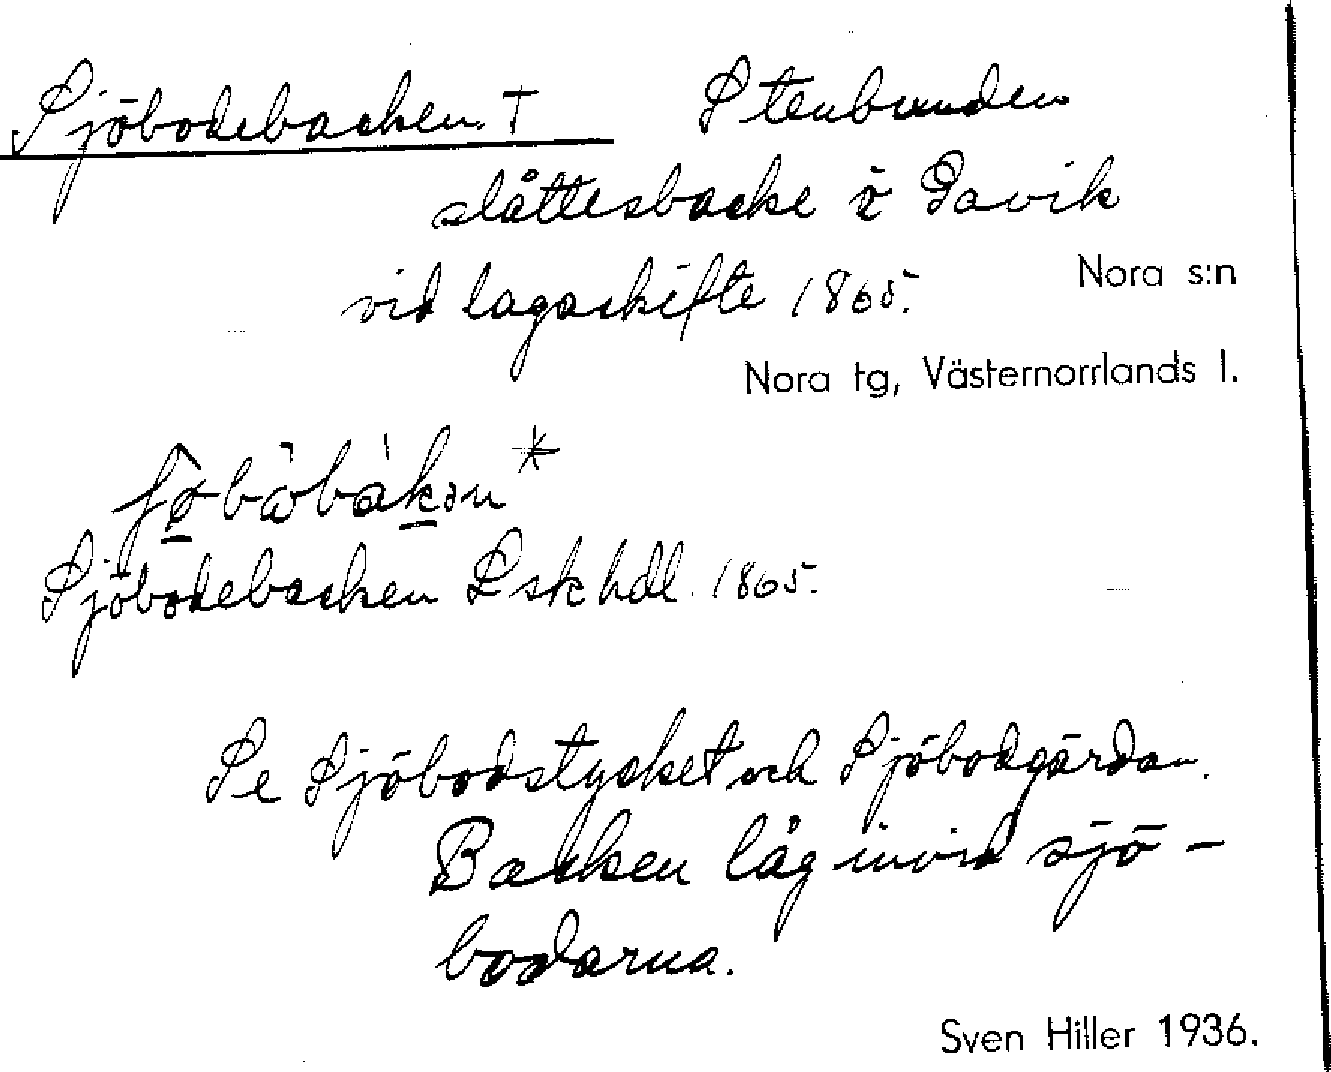 Sjöbodebacken. † Stenbunden
slåttesbacke i Gavik
vid lagaskifte 1865.
Nora s:n
Nora tg, Västernorrlands l.
Sjöbodebacken Lsk hdl. 1865.
Se Sjöbodstycket och Sjöbodgärdan.
Backen låg invid sjö-
bodarna.
Sven Hiller 1936.